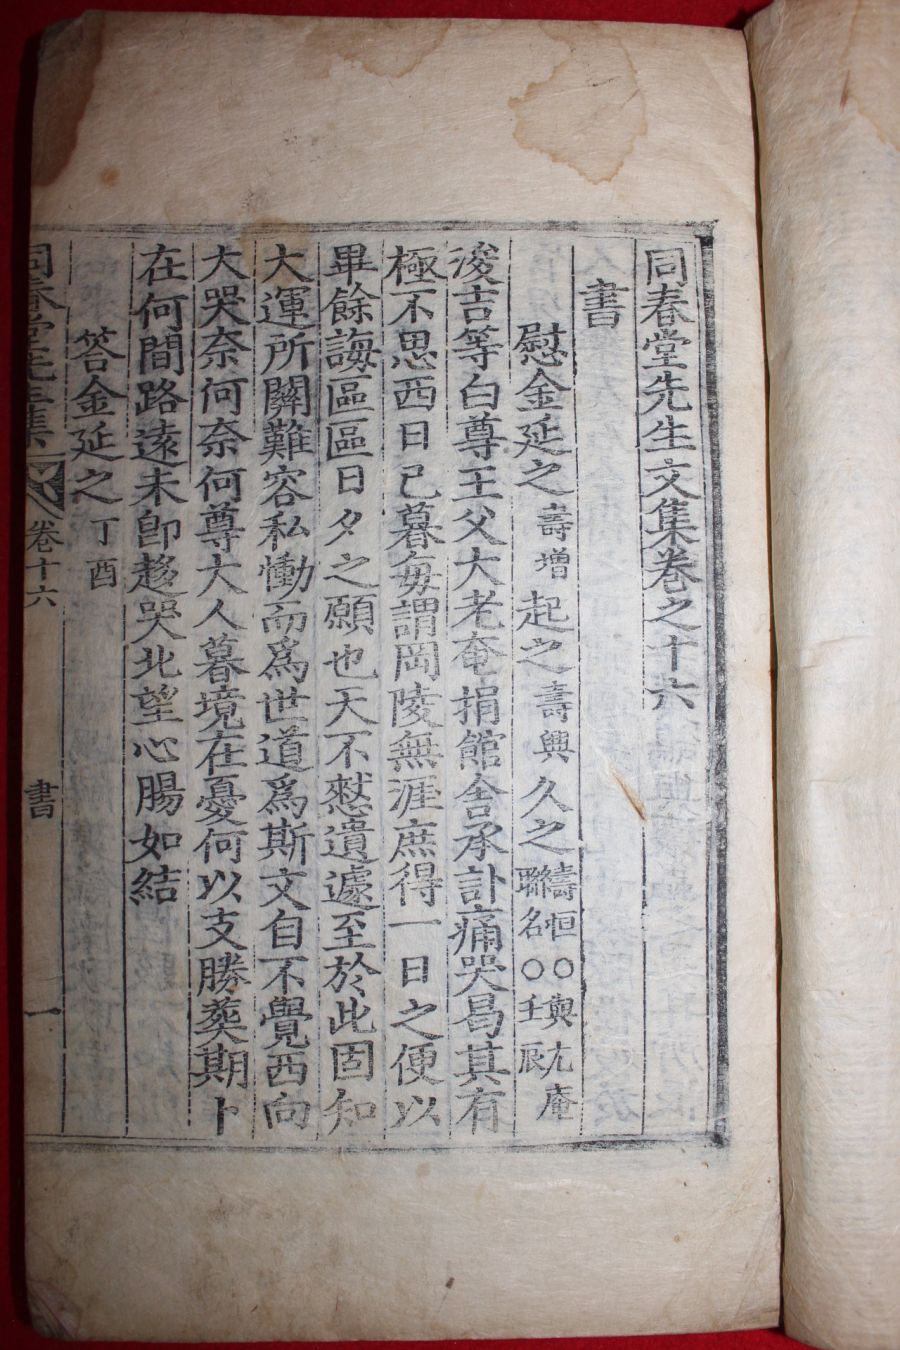 同春堂先生文集卷之十六
書
慰金延之壽增起之壽興久之壽恒○與尤庵聯名○壬辰
浚吉等白尊王父大老奄捐館舍承訃痛哭曷其有
極不思西日已暮每謂岡陵無涯庶得一日之便以
畢餘誨區區日夕之願也天不憗遺遽至於此固知
大運所關難容私慟而爲世道爲斯文自不覺西向
大哭奈何奈何尊大人暮境在憂何以支勝葬期卜
在何間路遠未卽趍哭北望心腸如結
答金延之丁酉
同春堂先生集 卷十六 書 一